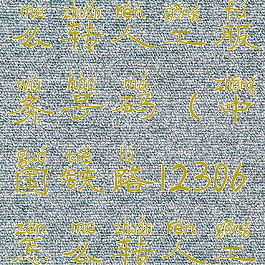 me zhuǎn rén gōng fú
么转人工服
wù hào mǎ zhōng
务号码（中
guó tiě lù
国铁路12306
zěn me zhuǎn rén gōng
怎么转人工